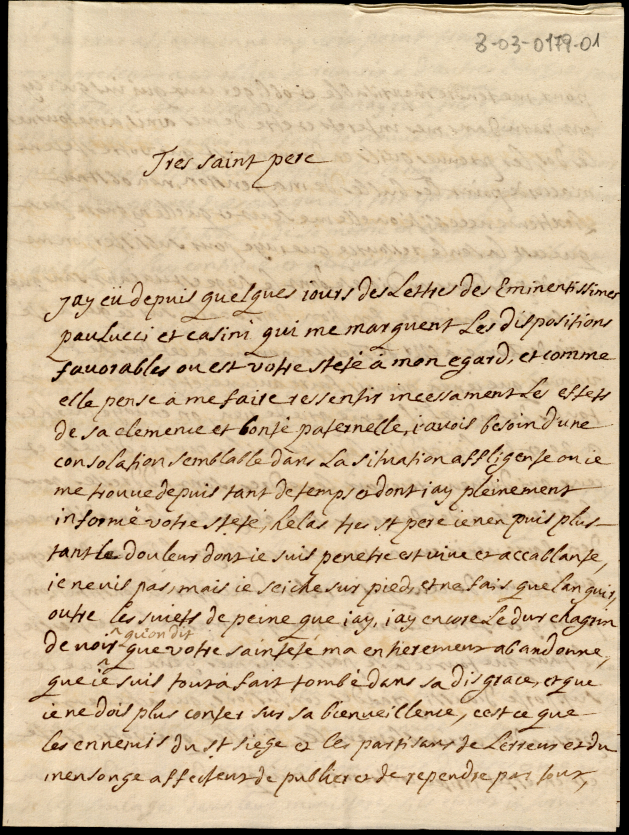 8-03-0179-01
Tres saint pere
jay eü depuis quelques iours des Lettres des Eminentissimes
paulucci et casini qui me marquent Les dispositions
favorables ou est votre steté à mon egard, et comme
elle pense à me faire ressentir incessament Les effets
de sa clemence et bonté paternelle, i'avois besoin d'une
consolation semblable dans La situation affligente ou ie
me trouve depuis tant de temps et dont jay pleinement
informé votre steté, helas tres st pere ie n'en puis plus
tant le douleur dont ie suis penetré est vive et accablante,
ie ne vis pas, mais ie seiche sur pied, et ne fais que languir,
outre les suiets de peine que jay, jay encore Le dur chagrin
qu'on dit
de noir que votre sainteté m'a entierement abandonné,
que ie suis tout à fait tombé dans sa disgrace, et que
ie ne dois plus conter sur sa bienveillence, c'est ce que
les ennemis du st siège et les partisans de L'erreur et du
mensonge affectent de publier et de rependre par tout,